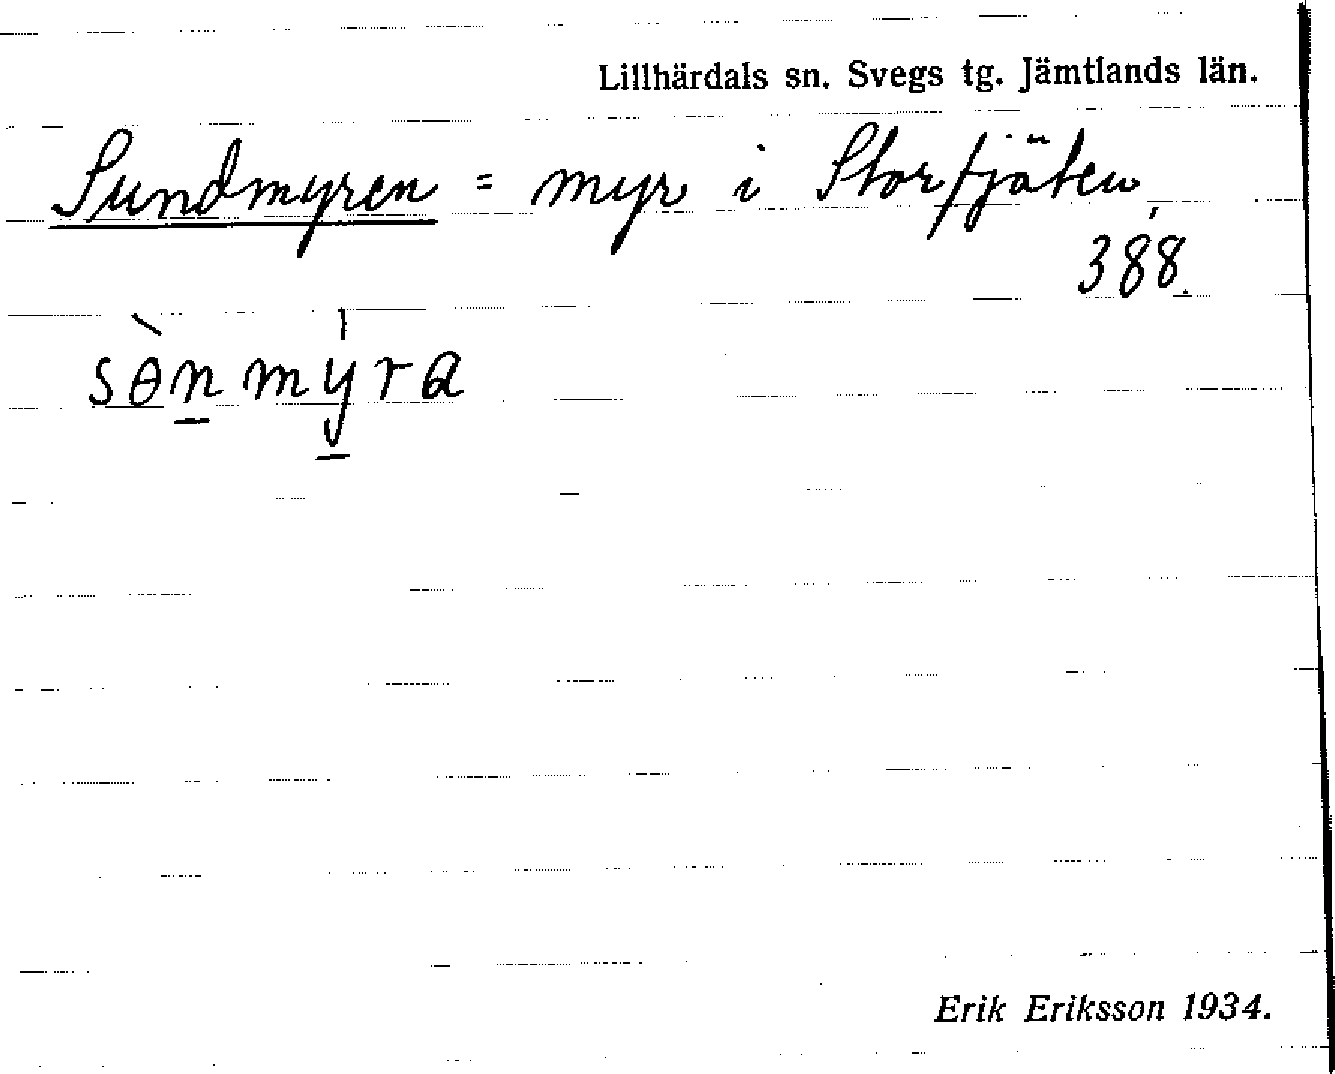 Lillhärdals sn. Svegs tg. Jämtlands län.
Sundmyren = myr i Storfjäten,
388.
sɵ̀nmyra
Erik Eriksson 1934.